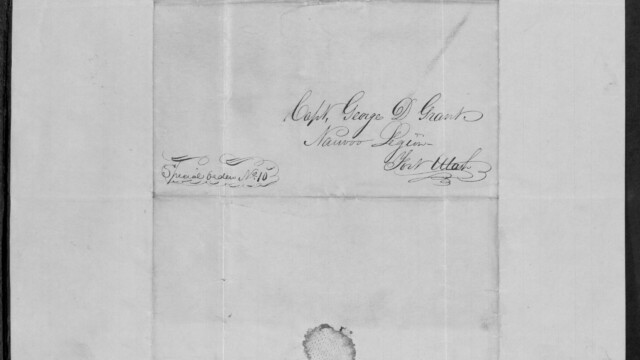 Capt. George D Grant
Nauvoo Legion
Fort Utah
Special order No 10